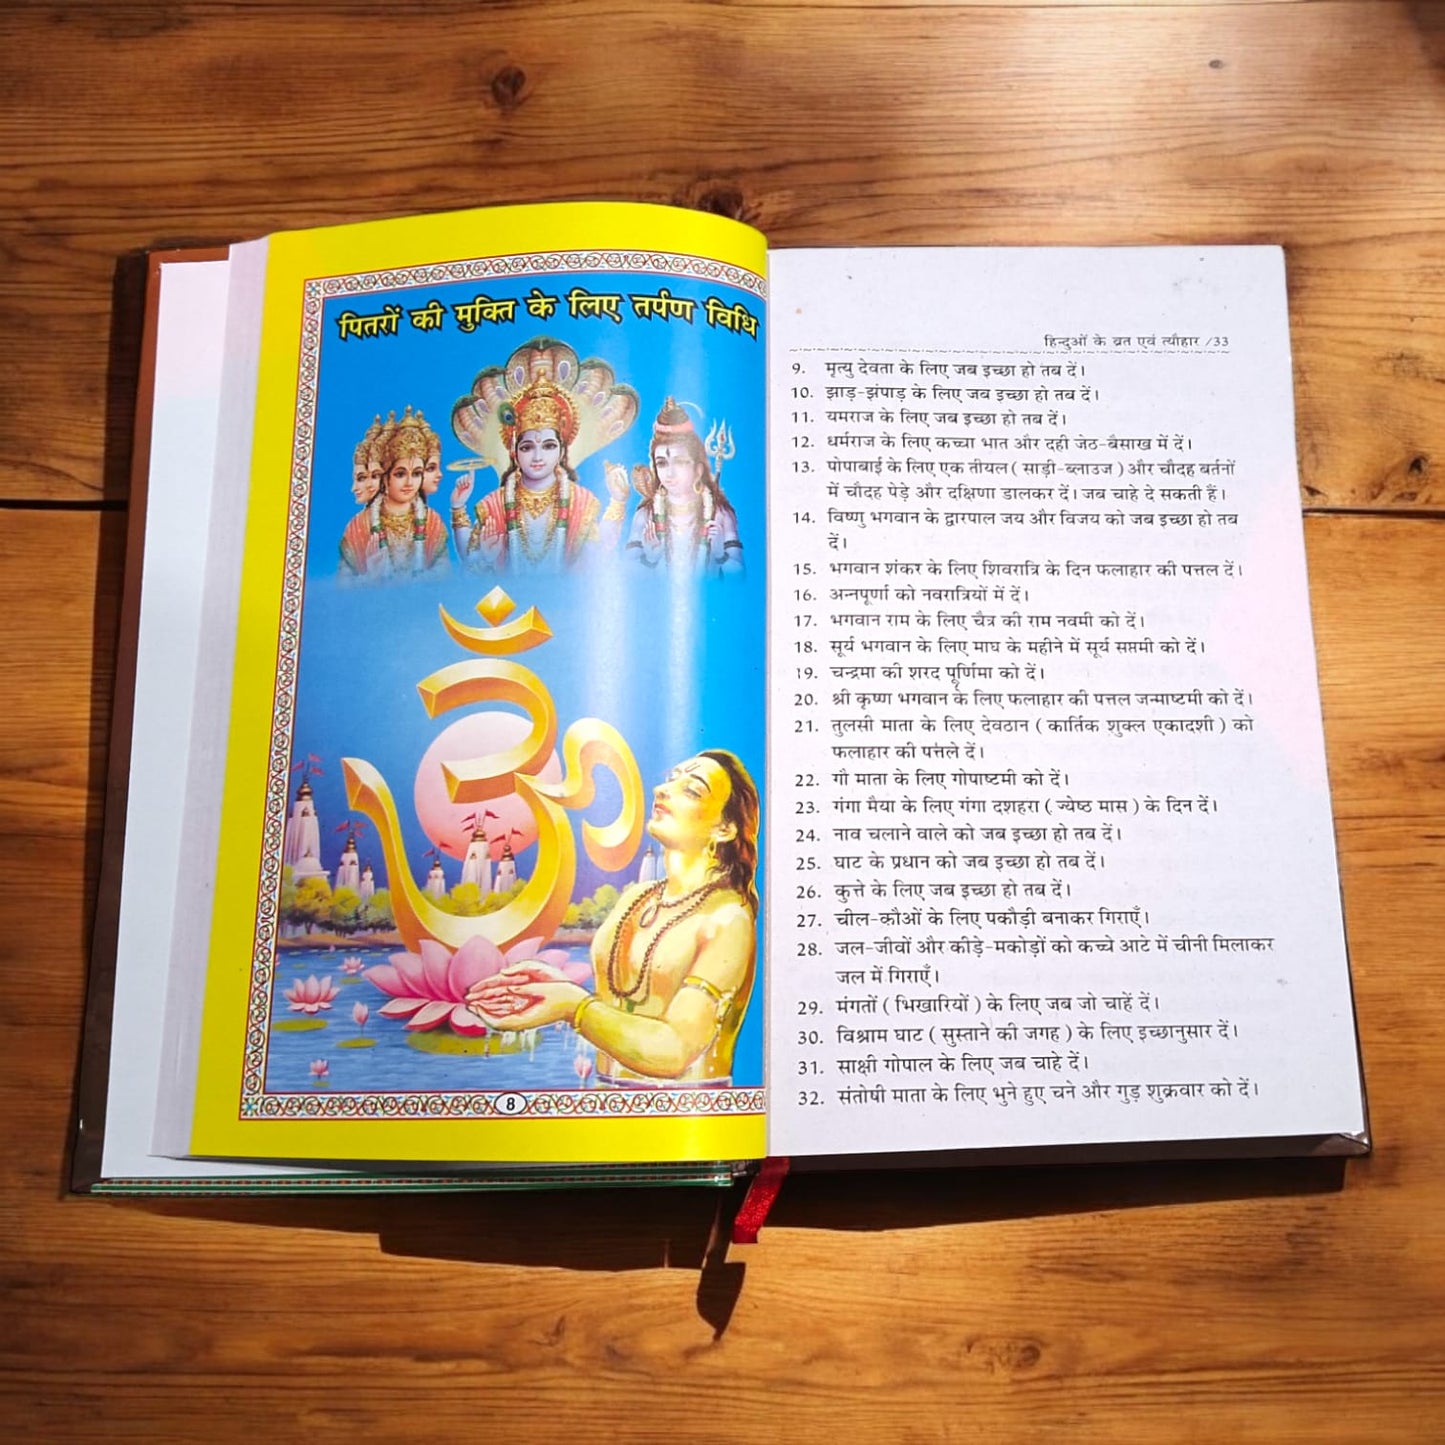 पितरों की मुक्ति के लिए तर्पण विधि
8
हिन्दुओं के व्रत एवं त्यौहार /33
9. मृत्यु देवता के लिए जब इच्छा हो तब दें।
10. झाड़-झंपाड़ के लिए जब इच्छा हो तब दें।
11. यमराज के लिए जब इच्छा हो तब दें।
12. धर्मराज के लिए कच्चा भात और दही जेठ-बैसाख में दें।
13. पोपाबाई के लिए एक तीयल ( साड़ी-ब्लाउज ) और चौदह बर्तनों
में चौदह पेड़े और दक्षिणा डालकर दें। जब चाहे दे सकती हैं।
14. विष्णु भगवान के द्वारपाल जय और विजय को जब इच्छा हो तब
दें।
15. भगवान शंकर के लिए शिवरात्रि के दिन फलाहार की पत्तल दें।
16. अन्नपूर्णा को नवरात्रियों में दें।
17. भगवान राम के लिए चैत्र की राम नवमी को दें।
18. सूर्य भगवान के लिए माघ के महीने में सूर्य सप्तमी को दें।
19. चन्द्रमा की शरद पूर्णिमा को दें।
20. श्री कृष्ण भगवान के लिए फलाहार की पत्तल जन्माष्टमी को दें।
21. तुलसी माता के लिए देवठान ( कार्तिक शुक्ल एकादशी ) को
फलाहार की पत्तले दें।
22. गौ माता के लिए गोपाष्टमी को दें।
23. गंगा मैया के लिए गंगा दशहरा ( ज्येष्ठ मास ) के दिन दें।
24. नाव चलाने वाले को जब इच्छा हो तब दें।
25. घाट के प्रधान को जब इच्छा हो तब दें।
26. कुत्ते के लिए जब इच्छा हो तब दें।
27. चील-कौओं के लिए पकौड़ी बनाकर गिराएँ।
28. जल-जीवों और कीड़े-मकोड़ों को कच्चे आटे में चीनी मिलाकर
जल में गिराएँ।
29. मंगतों ( भिखारियों ) के लिए जब जो चाहें दें।
30. विश्राम घाट ( सुस्ताने की जगह ) के लिए इच्छानुसार दें।
31. साक्षी गोपाल के लिए जब चाहे दें।
32. संतोषी माता के लिए भुने हुए चने और गुड़ शुक्रवार को दें।